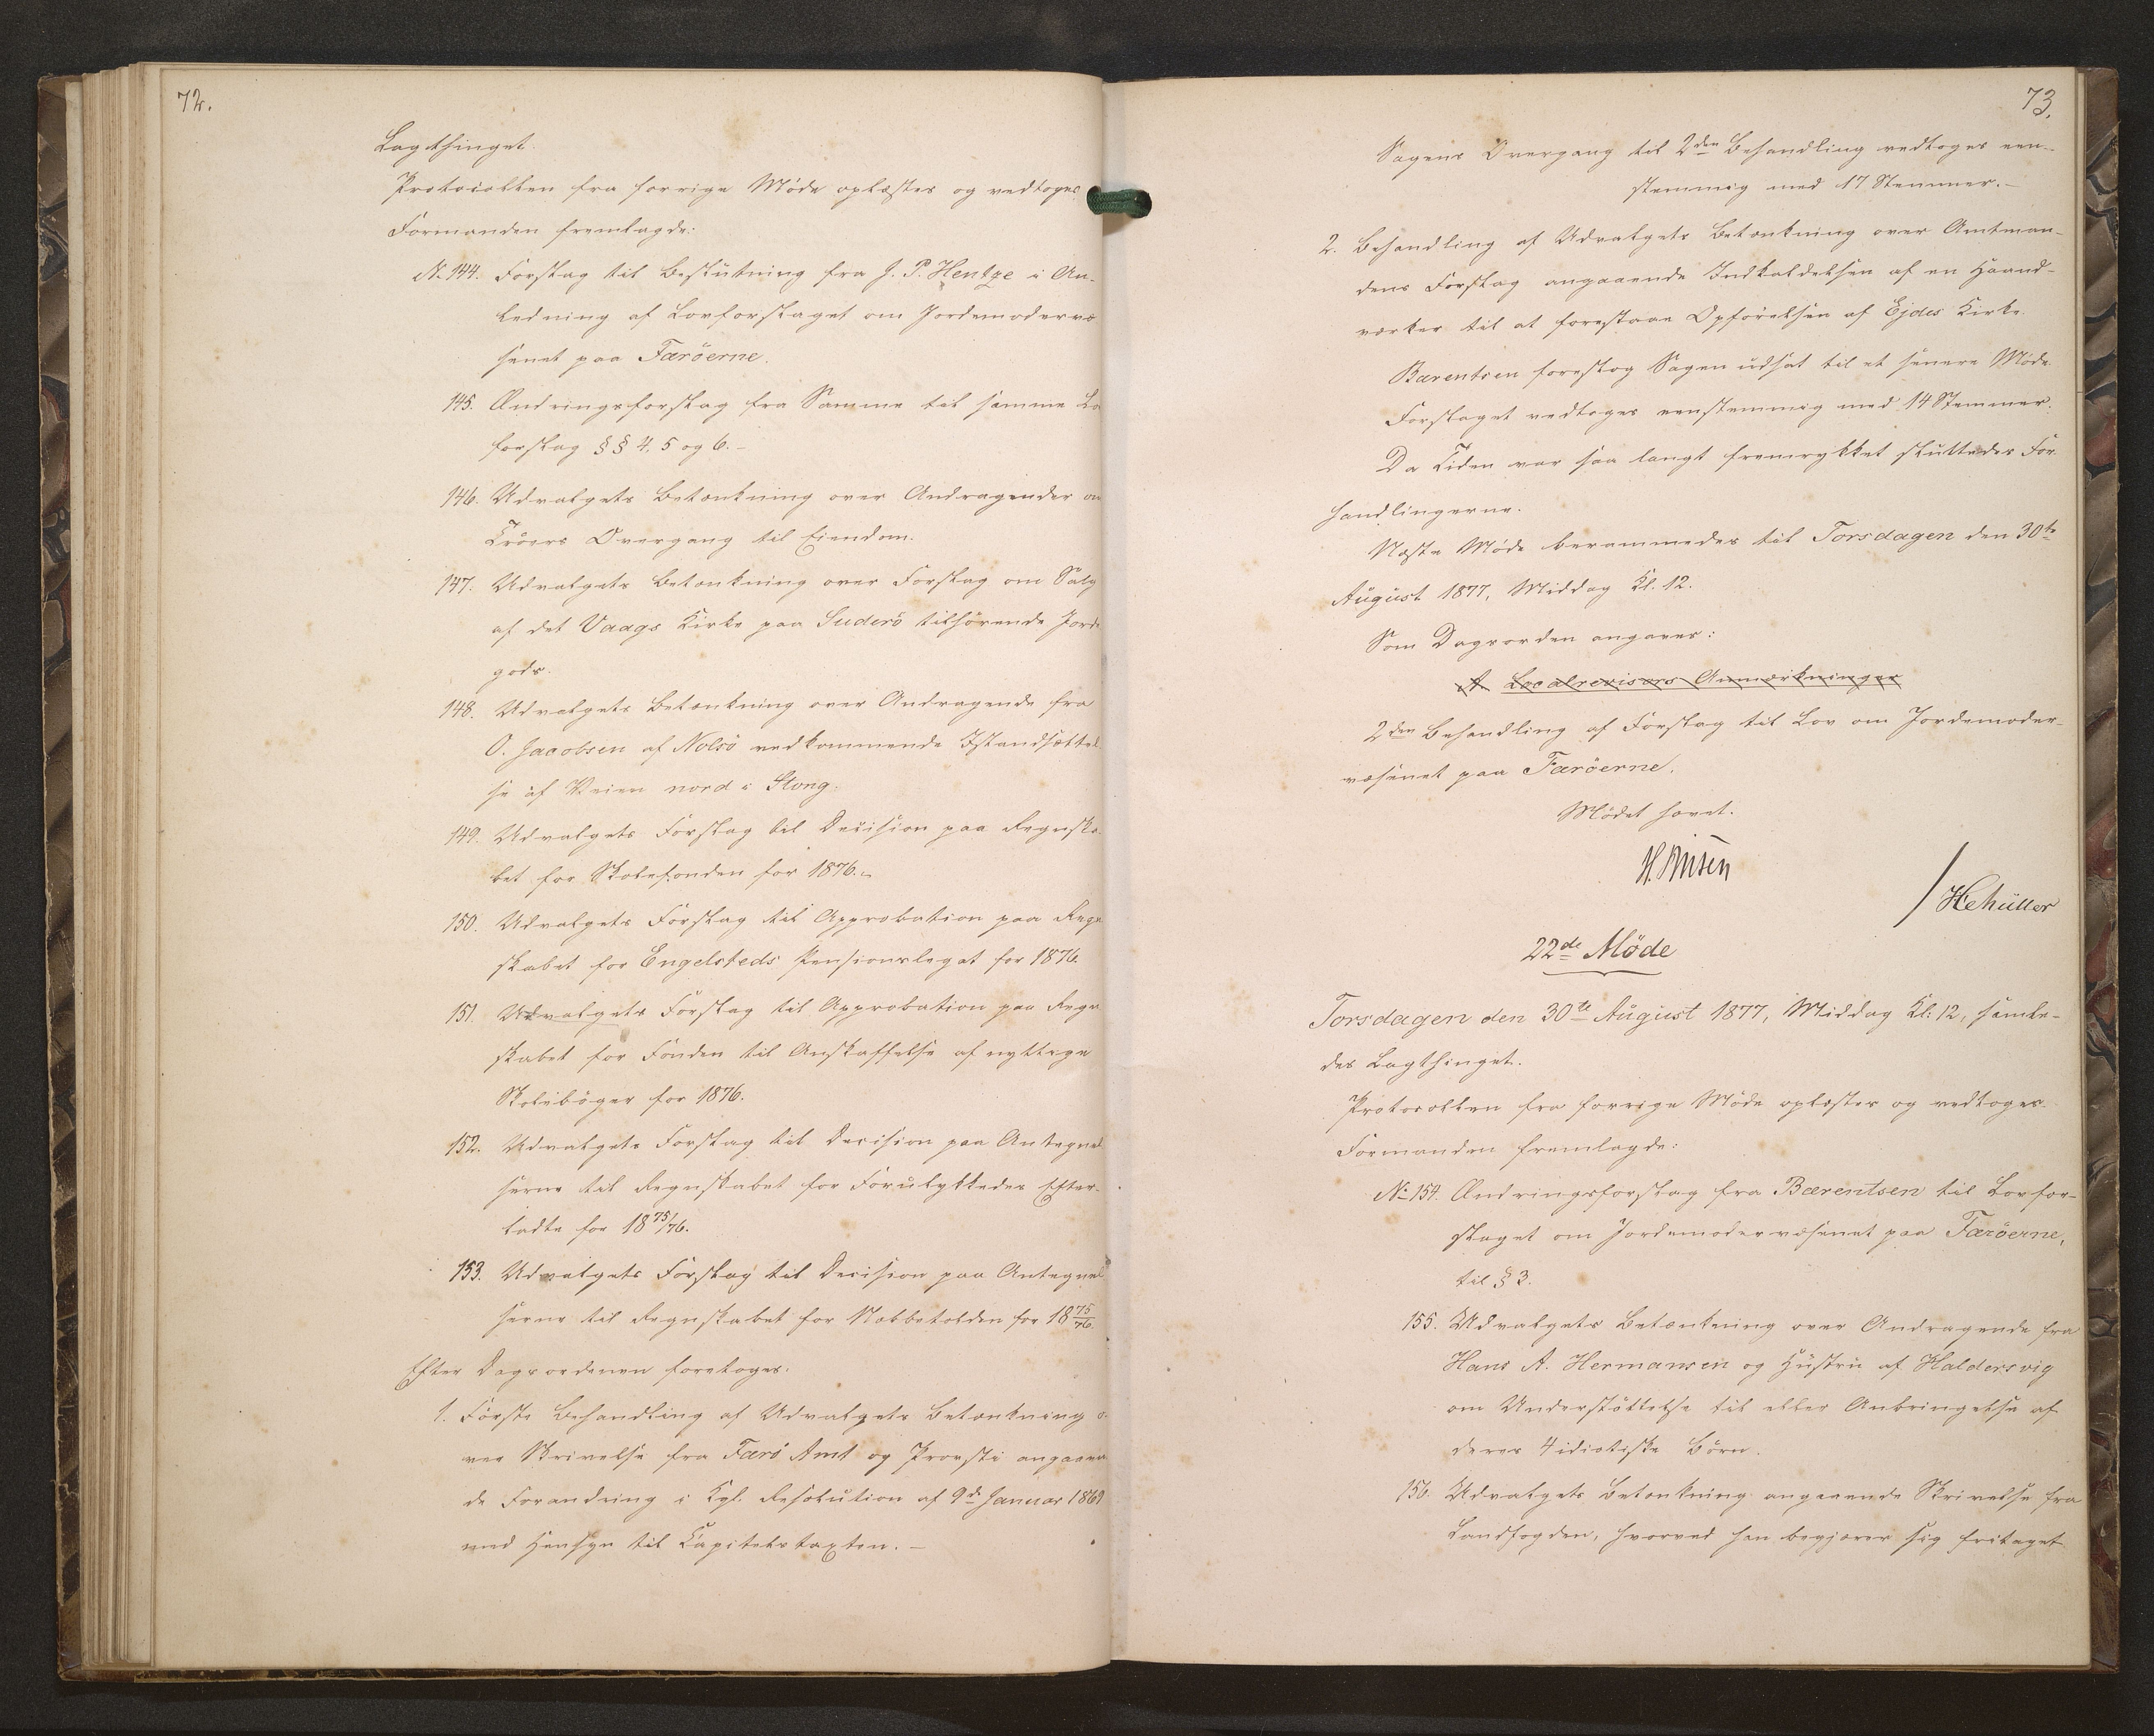 72.
Lagthinget.
Protocollen fra forrige Møde oplæstes og vedtoges
Formanden fremlagde:
No 144. Forslag til Beslutning fra J. P. Hentze i An-
ledning af Lovforslaget om Jordemodervæ
senet paa Færöerne.
145. Ændringsforslag fra Samme til samme Lo
forslag §§ 4, 5 og 6. –
146. Udvalgets Betænkning over Andragender om
Tröers Overgang til Eiendom.
147. Udvalgets Betænkning over Forslag om Salg
af det Vaags Kirke paa Suderö tilhörende Jorde
gods.
148. Udvalgets Betænkning over Andragende fra
O. Jacobsen af Nolsö vedkommende Istandsættel
se af Veien nord i Stong.
149. Udvalgets Forslag til Decision paa Regnska-
bet for Skolefonden for 1876. –
150. Udvalgets Forslag til Approbation paa Regn
skabet for Engelsteds Pensionslegat for 1876.
151. Udvalgets Forslag til Approbation paa Regn
skabet for Fonden til Anskaffelse af nyttige
Skolebøger for 1876.
152. Udvalgets Forslag til Decision paa Antegnel
serne til Regnskabet for Forulykkedes Efter-
ladte for 1875/76.
153. Udvalgets Forslag til Decision paa Antegnel
serne til Regnskabet for Næbbetolden for 1875/76.
Efter Dagsordenen foretoges:
1. Første Behandling af Udvalgets Betænkning o-
ver Skrivelse fra Færö Amt og Provsti angaaen
de Forandring i Kgl. Resolution af 9d. Januar 1869
med Hensyn til Capitelstaxten. –
73.
Sagens Overgang til 2den Behandling vedtoges een-
stemmig med 17 Stemmer. –
2. Behandling af Udvalgets Betænkning over Amtman-
dens Forslag angaaende Indkaldelsen af en Haand-
værker til at forestaae Opförelsen af Ejdes Kirke.
Bærentsen foreslog Sagen udsat til et senere Møde.
Forslaget vedtoges eenstemmig med 14 Stemmer.
Da Tiden var saa langt fremrykket sluttedes For-
handlingerne.
Næste Møde berammedes til Torsdagen den 30te
August 1877, Middag Kl. 12.
Som Dagsorden angaves:
1. Localrevisors Anmærkninger
2den Behandling af Forslag til Lov om Jordemoder-
væsenet paa Færöerne.
Mødet hævet.
22de Möde
Torsdagen den 30te August 1877, Middag Kl: 12, samle-
des Lagthinget.
Protocollen fra forrige Møde oplæstes og vedtoges.
Formanden fremlagde:
No 154. Ændringsforslag fra Bærentsen til Lovfor-
slaget om Jordemodervæsenet paa Færöerne,
til § 3.
155. Udvalgets Betænkning over Andragende fra
Hans A. Hermansen og Hustru af Haldersvig
om Understöttelse til eller Anbringelse af
deres 4 idiotiske Börn.
156. Udvalgets Betænkning angaaende Skrivelse fra
Landfogden, hvorved han begjærer sig fritaget